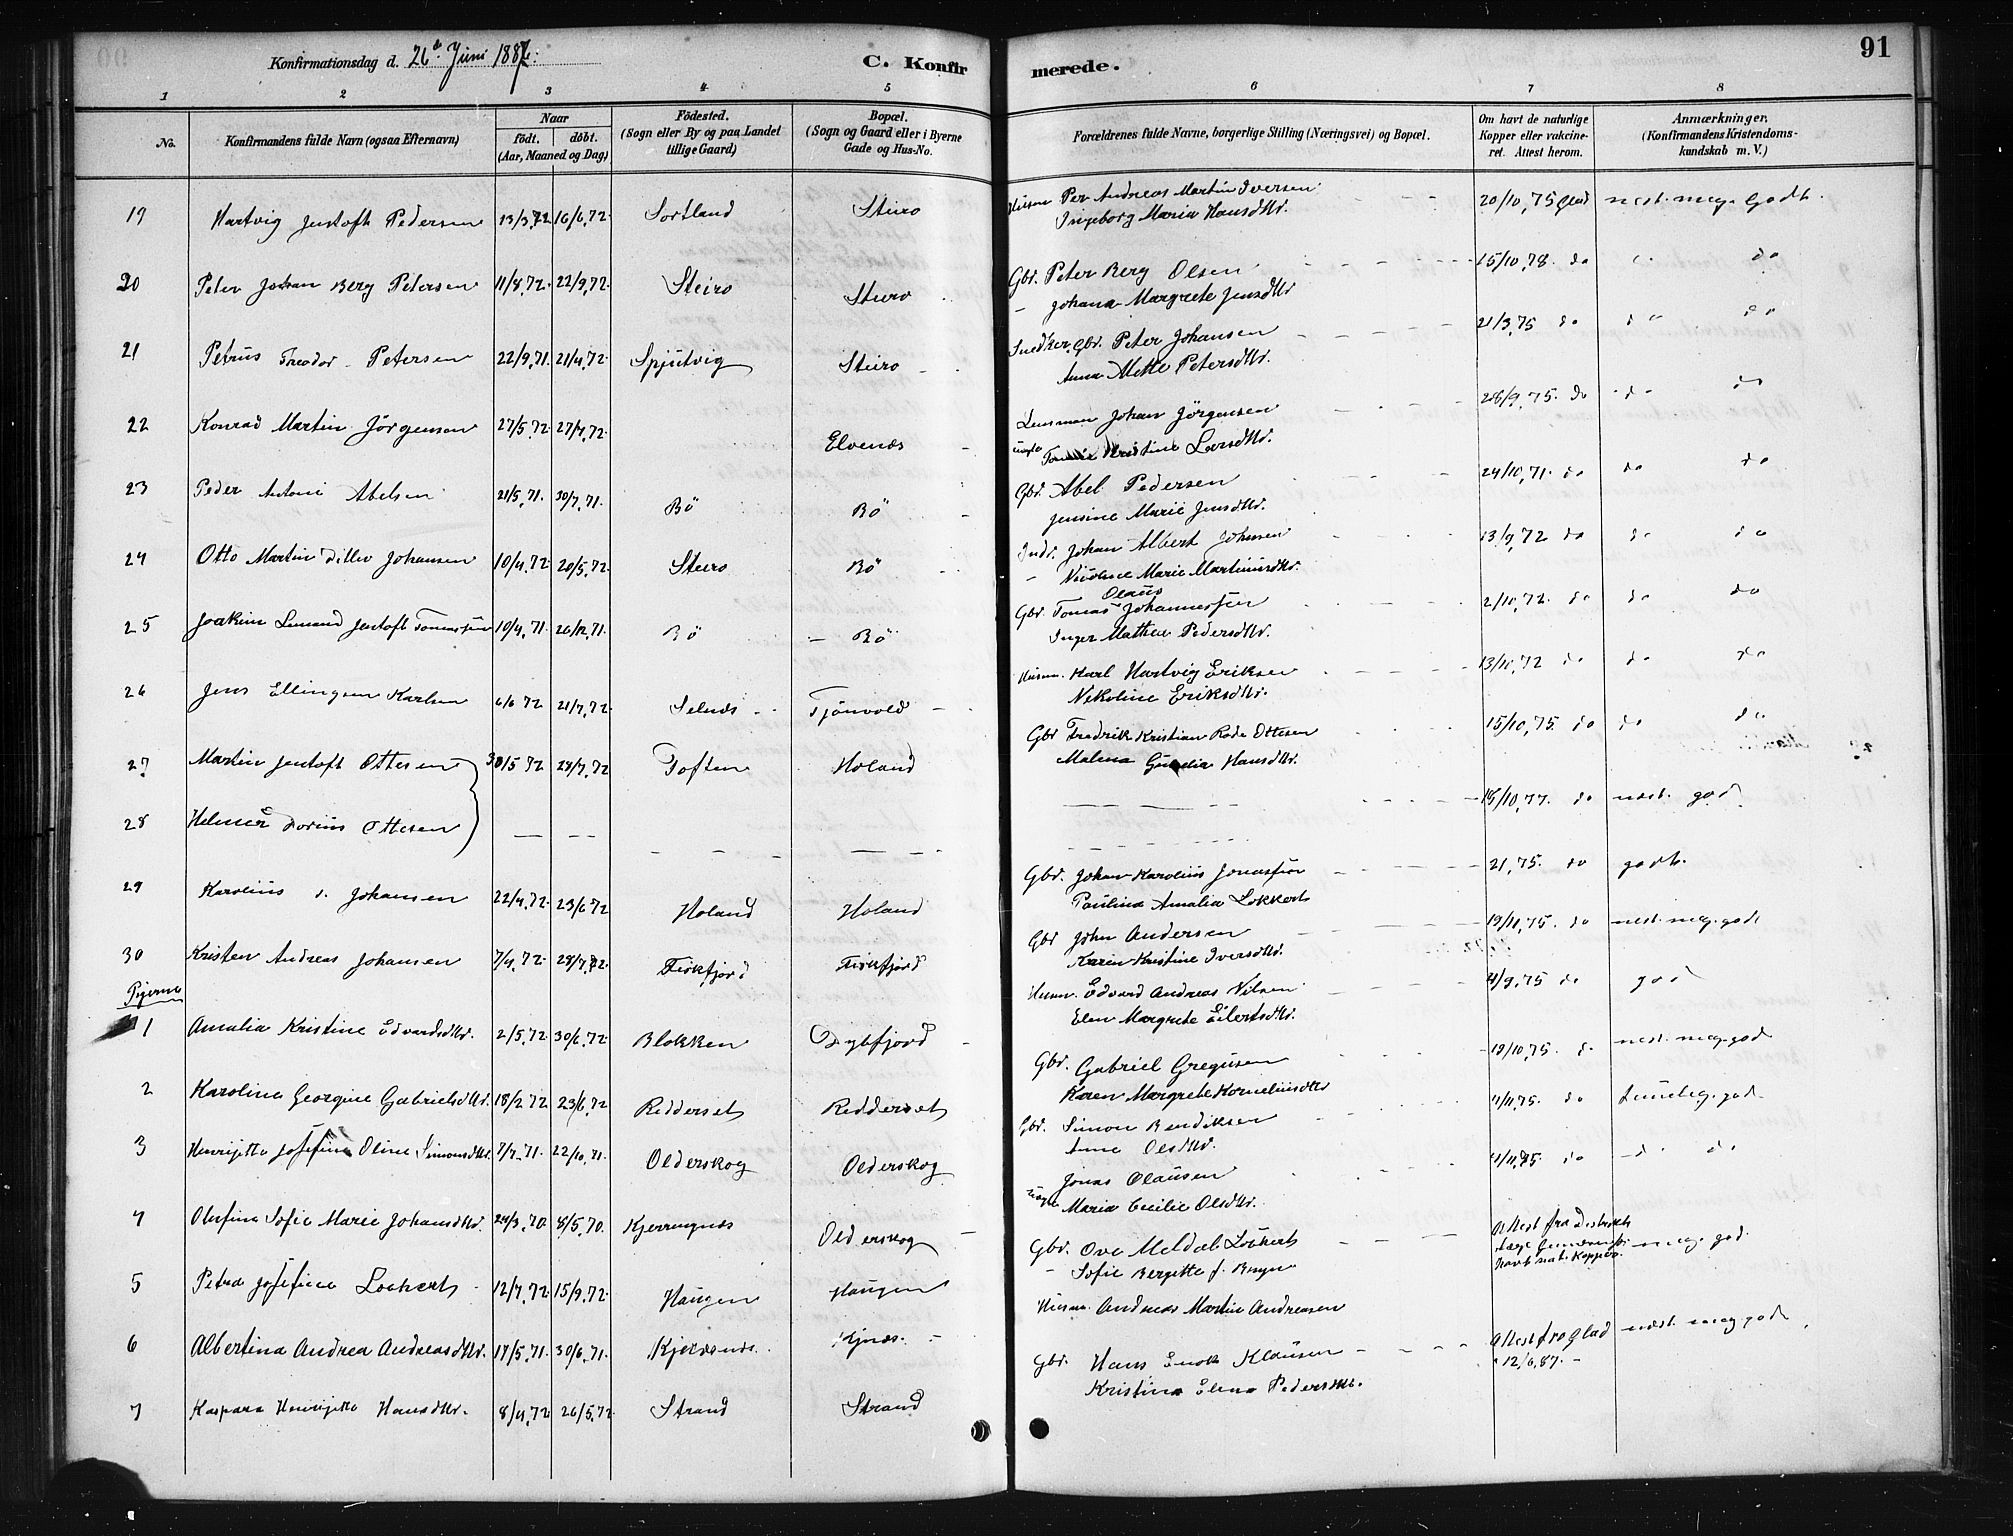 Konfirmationsdag d. 26de Juni 1887.
C. Konfirmerede.
91
1 2 3 4 5 6 7 8
No.
Konfirmandens fulde Navn (ogsaa Efternavn)
Naar
födt. döbt.
(Aar, Maaned og Dag)
Födested.
(Sogn eller By og paa Landet
tillige Gaard)
Bopæl.
(Sogn og Gaard eller i Byerne
Gade og Hus-No.
Forældrenes fulde Navne, borgerlige Stilling (Næringsvei) og Bopæl.
Om havt de naturlige
Kopper eller vakcine-
ret. Attest herom.
Anmærkninger.
(Konfirmandens Kristendoms-
kundskab m. V.)
19 Hartvig Jentoft Pedersen 13/3.72 16/6.72 Sortland Steiro Husm Per Andreas Martin Iversen 20/10.75 Glad nest. meg. Godt.
Ingeborg Maria Hansdttr.
20 Peter Johan Berg Petersen 11/8.72. 22/9.72. Steiro Steiro Gbr. Peter Berg Olsen 15/10.78. do do
Johana Margrete Jensdttr
21 Petrus Treodor Petersen 22/9.71. 21/4.72 Spjutvig Steiro Snedker, Gbr. Peter Johansen 21/3.75 do do do
Anna Mette Petersdttr.
22 Konrad Martin Jörgensen 27/5.72. 27/7.72. Elvenæs Lensman Johan Jörgensen 28/9.75. do do do
ugift Kristine Larsdttr.
23 Peder Antoni Abelsen 21/5.71. 30/7.71. Bö Bö Gbr. Abel Pedersen 24/10.71. do do do
Jensine Marie Jensdttr.
24 Otto Martin Ditlev Johansen 10/4.72. 20/5.72. Steiro Bö Indr. Johan Albert Johnsen 13/9.72 do do do
Nicoline Marie Martinusdttr.
25 Joakim Jentoft Tomassen 10/4.71. 26/12.71. Bö Bö Gbr. Tomas Olaus Johannessen 2/10.72. do do do
Inger Mathea Pedersdttr.
26 Jens Ellingsen Karlsen 6/6 72 21/7.72. Selnæs Tjönvold Husm. Karl Hartvig Eriksen 13/10.72 do do do
Nikoline Eriksdttr.
27 Martin Jentoft Ottesen 30/5 72 28/7.72 Toften Holand Gbr Fredrik Kristian Rode Ottesen 15/10.75 do do do
Malena Hansdttr.
28 Helmer Dorius Ottesen — — — — 15/10.77. do næst. god
29 Karolius J. Johansen 22/4.72. 23/6 72 Holand Holand Gbr. Johan Karolius Jonassen 21.75. do godt.
Paulina Amalia Lokkert
30 Kristen Andreas Johansen 7/4.72. 28/7.72. Fiskfjord Fiskfjord Gbr John Andersen 19/11.75. do nest. meg. god
Karen Kristine Iversdttr.
Pigerne
1 Amalia Kristine Edvardsdttr. 2/5.72 30/6.72 Blokken Dybfjord Husm. Edvard Andreas Nilsen 4/9.75 do god
Elen Margrete Eilertsdttr.
2 Karolina Georgine Gabrielsdttr. 18/2 72 23/6.72 Redderset Redderset Gbr. Gabriel Gregusen 19/10.75. do nest. meg. god
Karen Margrete Korneliusdttr
3 Henrijette Josefine Oline Simonsdttr. 7/7.71. 22/10.71. Olderskog Olderskog Gbr. Simon Bendiksen 4/11.75. do god.
Anne Olsdttr.
4 Olufina Sofie Marie Johansdttr. 24/3.70. 8/5.70. Kjerringnæs Olderskog Jonas Olausen 4/11.75 do do do
ugift Maria Cecilie Olsdttr.
5 Petra Josefine Lockert 12/7.72. 15/9.72. Haugen Haugen Gbr. Ove Meldal Lockert Attest fra Distrikts meg. god.
Sofie Bergitte f. havt nat. Kopper.
6 Albertina Andrea Andreasdttr. 17/5.71. 30/6.71. Kjnæs. Husm. Andreas Martin Andreasen
7 Kaspara Henrijette Hansdttr. 8/4.72 26/5.72. Strand Strand Gbr. Hans Enok Klausen Attest fra Glad næst. meg god
Kristina Elena Pedersdttr. 12/6.87.